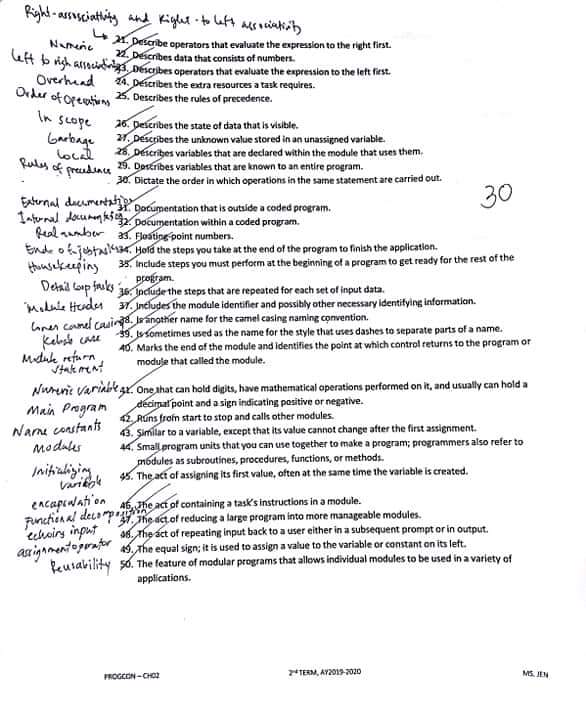 Right-assosciativity and Right-to left associativity
Numeric 21. Describe operators that evaluate the expression to the right first.
22. Describes data that consists of numbers.
left to righ associativity 23. Describes operators that evaluate the expression to the left first.
Overhead 24. Describes the extra resources a task requires.
Order of Operations 25. Describes the rules of precedence.
In scope 26. Describes the state of data that is visible.
Garbage 27. Describes the unknown value stored in an unassigned variable.
Local 28. Describes variables that are declared within the module that uses them.
29. Describes variables that are known to an entire program.
Rules of precedence 30. Dictate the order in which operations in the same statement are carried out.
30
External documentation 31. Documentation that is outside a coded program.
Internal documentation 32. Documentation within a coded program.
Real number 33. Floating-point numbers.
End of job tasks 34. Hold the steps you take at the end of the program to finish the application.
Housekeeping 35. Include steps you must perform at the beginning of a program to get ready for the rest of the
program.
Detail loop tasks 36. Include the steps that are repeated for each set of input data.
Module Header 37. Includes the module identifier and possibly other necessary identifying information.
Lower camel casing 38. Is another name for the camel casing naming convention.
Kebab case 39. Is sometimes used as the name for the style that uses dashes to separate parts of a name.
Module return 40. Marks the end of the module and identifies the point at which control returns to the program or
statement module that called the module.
Numeric Variable 41. One that can hold digits, have mathematical operations performed on it, and usually can hold a
decimal point and a sign indicating positive or negative.
Main Program 42. Runs from start to stop and calls other modules.
Name constants 43. Similar to a variable, except that its value cannot change after the first assignment.
Modules 44. Small program units that you can use together to make a program; programmers also refer to
modules as subroutines, procedures, functions, or methods.
Initializing 45. The act of assigning its first value, often at the same time the variable is created.
Variable
encapsulation 46. The act of containing a task's instructions in a module.
Functional decomposition 47. The act of reducing a large program into more manageable modules.
echoing input 48. The act of repeating input back to a user either in a subsequent prompt or in output.
assignment operator 49. The equal sign; it is used to assign a value to the variable or constant on its left.
Reusability 50. The feature of modular programs that allows individual modules to be used in a variety of
applications.
PROGCON – CH02 2ⁿᵈ TERM, AY2019-2020 MS. JEN